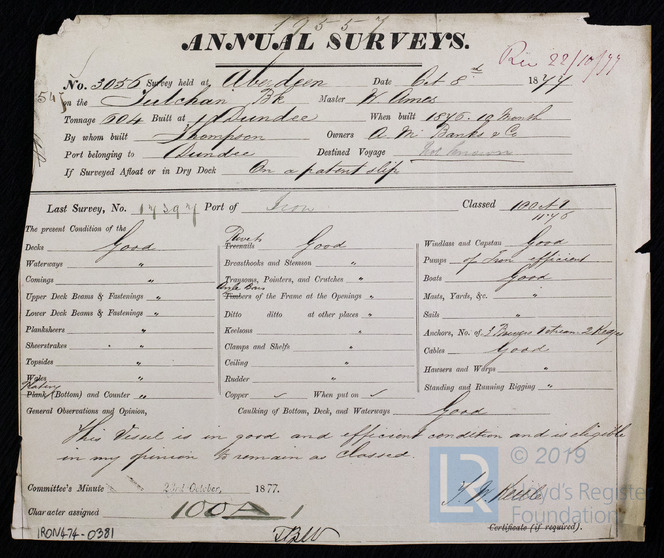 19557
ANNUAL SURVEYS.
Rec 22/10/77
No. 3056 Survey held at Aberdeen Date Oct 8th 1877
on the Tulchan Bk Master W Ames
Tonnage 504 Built at Dundee When built 1875. 10 Month
By whom built Thompson Owners A. M. Banks & Co
Port belonging to Dundee Destined Voyage Not known
If Surveyed Afloat or in Dry Dock On a patent slip
Last Survey, No. 17397 Port of Iron Classed 100A1
11.75
The present Condition of the
Decks Good
Waterways "
Comings "
Upper Deck Beams & Fastenings "
Lower Deck Beams & Fastenings "
Planksheers "
Sheerstrakes "
Topsides "
Wales "
Plating
Plank (Bottom) and Counter "
Rivets
Treenails Good
Breasthooks and Stemson "
Transoms, Pointers, and Crutches "
Angle Bars
Timbers of the Frame at the Openings "
Ditto ditto at other places "
Keelsons "
Clamps and Shelfs "
Ceiling "
Rudder "
Copper ✓ When put on ✓
Windlass and Capstan Good
Pumps of Iron efficient
Boats Good
Masts, Yards, &c. "
Sails "
Anchors, No. of 3 Bowers 1 stream 2 Kedges
Cables Good
Hawsers and Warps "
Standing and Running Rigging "
General Observations and Opinion, Caulking of Bottom, Deck, and Waterways Good
This Vessel is in good and efficient condition and is eligible
in my opinion to remain as classed.
Committee's Minute 23rd October, 1877.
Character assigned 100A 1
Certificate (if required).
IRON474-0381
LR © 2019
Lloyd's Register
Foundation